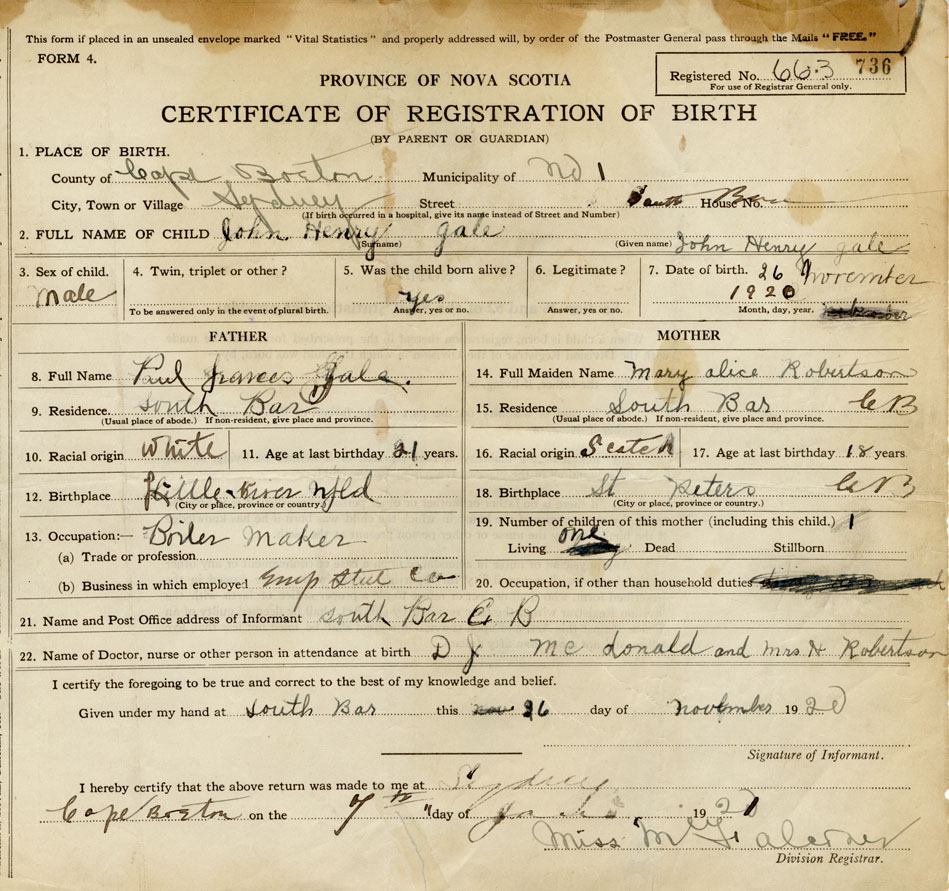 This form if placed in an unsealed envelope marked "Vital Statistics" and properly addressed will, by order of the Postmaster General pass through the Mails "FREE."
FORM 4.
PROVINCE OF NOVA SCOTIA
Registered No. 663 736
For use of Registrar General only.
CERTIFICATE OF REGISTRATION OF BIRTH
(BY PARENT OR GUARDIAN)
1. PLACE OF BIRTH.
County of Cape Boeton Municipality of No 1
City, Town or Village Sydney Street South House No.
(If birth occurred in a hospital, give its name instead of Street and Number)
2. FULL NAME OF CHILD John Henry gale John Henry gale
(Surname) (Given name)
3. Sex of child. 4. Twin, triplet or other? 5. Was the child born alive? 6. Legitimate? 7. Date of birth. 26 November
male yes 1920
To be answered only in the event of plural birth. Answer, yes or no. Answer, yes or no. Month, day, year.
FATHER MOTHER
8. Full Name Paul frances Gale. 14. Full Maiden Name Mary alice Robertson
9. Residence. South Bar 15. Residence South Bar C B
(Usual place of abode.) If non-resident, give place and province. (Usual place of abode.) If non-resident, give place and province.
10. Racial origin White 11. Age at last birthday 21 years. 16. Racial origin Scotch 17. Age at last birthday 18 years
12. Birthplace River Nfld 18. Birthplace St Peters C B
(City or place, province or country) (City or place, province or country.)
13. Occupation:— Boiler Maker 19. Number of children of this mother (including this child.) 1
(a) Trade or profession Living one Dead Stillborn
(b) Business in which employed Emp Steel Co 20. Occupation, if other than household duties
21. Name and Post Office address of Informant South Bar C B
22. Name of Doctor, nurse or other person in attendance at birth D J Mc donald and Mrs H Robertson
I certify the foregoing to be true and correct to the best of my knowledge and belief.
Given under my hand at South Bar this nov 26 day of november 1920
Signature of Informant.
I hereby certify that the above return was made to me at Sydney
Cape Boeton on the 7th day of 1921
Miss
Division Registrar.